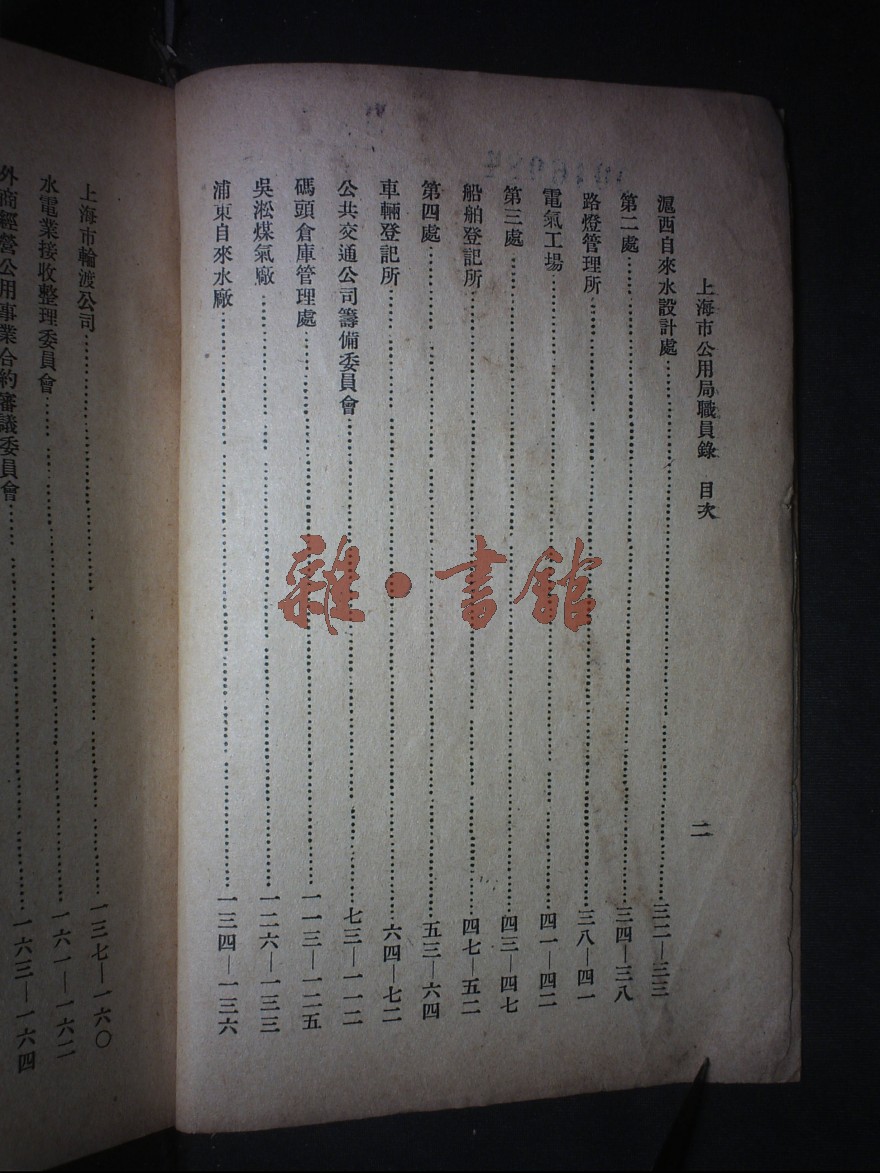 上海市公用局職員錄 目次 二
滬西自來水設計處 三二—三三
第二處 三四—三八
路燈管理所 三八—四一
電氣工場 四一—四二
第三處 四三—四七
船舶登記所 四七—五二
第四處 五三—六四
車輛登記所 六四—七二
公共交通公司籌備委員會 七三—一一二
碼頭倉庫管理處 一一三—一二五
吳淞煤氣廠 一二六—一三三
浦東自來水廠 一三四—一三六
上海市輪渡公司 一三七—一六〇
水電業接收整理委員會 一六一—一六二
外商經營公用事業合約審議委員會 一六三—一六四
雜·書館